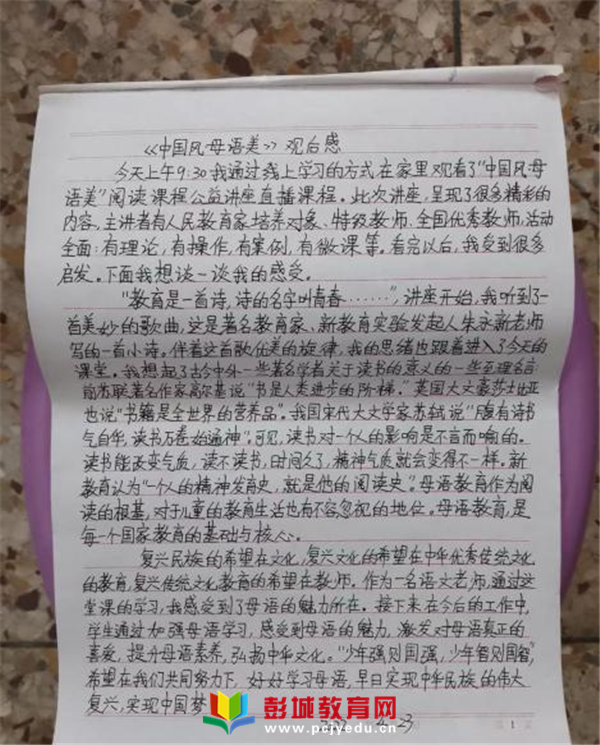 《中国风·母语美》观后感
今天上午9:30我通过线上学习的方式在家里观看了“中国风·母
语美”阅读课程公益讲座直播课程。此次讲座,呈现了很多精彩的
内容。主讲者有人民教育家培养对象、特级教师、全国优秀教师,活动
全面:有理论,有操作,有案例,有微课等。看完以后,我受到很多
启发。下面我想谈一谈我的感受。
“教育是一首诗,诗的名字叫青春……”,讲座开始,我听到了一
首美妙的歌曲,这是著名教育家、新教育实验发起人朱永新老师
写的一首小诗。伴着这首歌优美的旋律,我的思绪也跟着进入了今天的
课堂。我想起了古今中外一些著名学者关于读书的意义的一些至理名言
前苏联著名作家高尔基说“书是人类进步的阶梯。”英国大文豪莎士比亚
也说“书籍是全世界的营养品”。我国宋代大文学家苏轼说“腹有诗书
气自华,读书万卷始通神”。可见,读书对一个人的影响是不言而喻的。
读书能改变气质,读不读书,时间久了,精神气质就会变得不一样。新
教育认为“一个人的精神发育史,就是他的阅读史”。母语教育作为阅
读的根基,对于儿童的教育生活也有不容忽视的地位。母语教育,是
每一个国家教育的基础与核心。
复兴民族的希望在文化,复兴文化的希望在中华优秀传统文化
的教育,复兴传统文化教育的希望在教师。作为一名语文老师,通过这
堂课的学习,我感受到了母语的魅力所在。接下来在今后的工作中,
学生通过加强母语学习,感受到母语的魅力,激发对母语真正的
喜爱,提升母语素养,弘扬中华文化。“少年强则国强,少年智则国智”,
希望在我们共同努力下,好好学习母语,早日实现中华民族的伟大
复兴,实现中国梦
4.23
第 1 页
彭城教育网
www.pcjyedu.cn